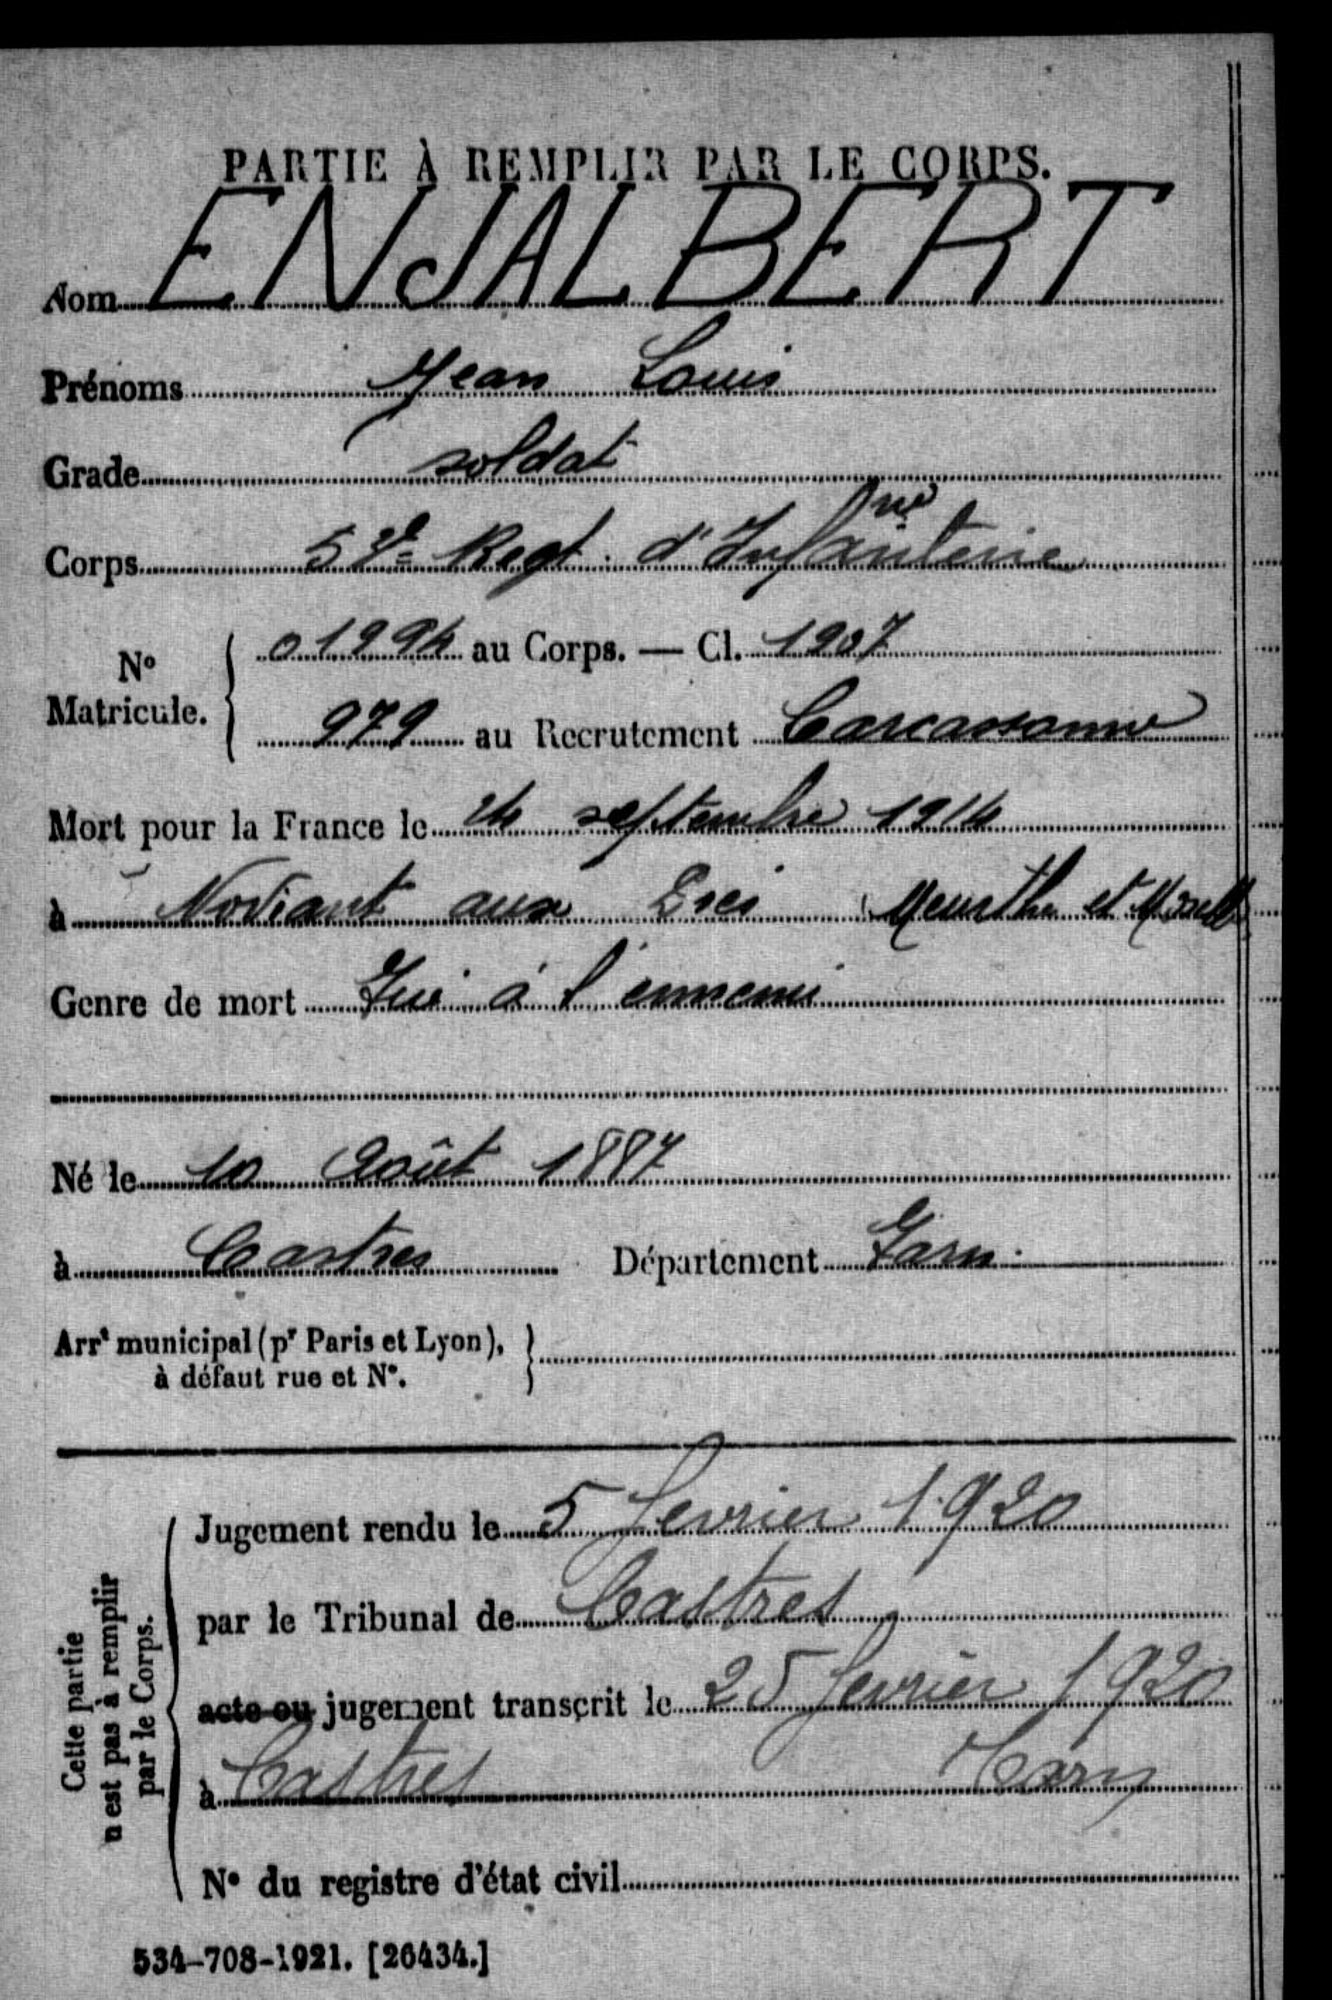 PARTIE À REMPLIR PAR LE CORPS.
Nom ENJALBERT
Prénoms Jean Louis
Grade soldat
Corps Regt. d'Infanterie
N° Matricule. 01994 au Corps. — Cl. 1907
979 au Recrutement Carcassonne
Mort pour la France le 24 septembre 1914
à Noviant aux Prés Meurthe et Moselle
Genre de mort Tué à l'ennemi
Né le 10 Août 1887
à Castres Département Tarn.
Arrt municipal (pr Paris et Lyon),
à défaut rue et N°.
Cette partie
n'est pas à remplir
par le Corps.
Jugement rendu le 5 fevrier 1920
par le Tribunal de Castres
acte ou jugement transcrit le 25 fevrier 1920
à Castres Tarn
N° du registre d'état civil
534-708-1921. [26434.]